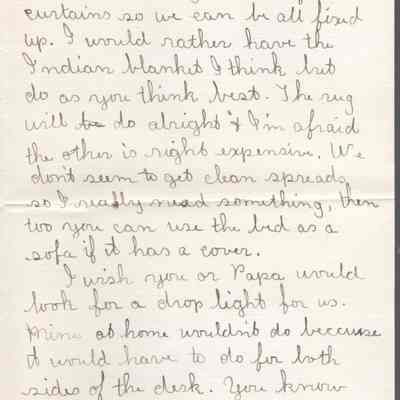 curtains so we can be all fixed
up. I would rather have the
Indian blanket I think but
do as you think best. The rug
will be do alright & I'm afraid
the other is right expensive. We
don't seem to get clean spreads
so I really need something, then
too you can use the bed as a
sofa if it has a cover.
I wish you or Papa would
look for a drop light for us.
Mine at home wouldn't do because
it would have to do for both
sides of the desk. You know